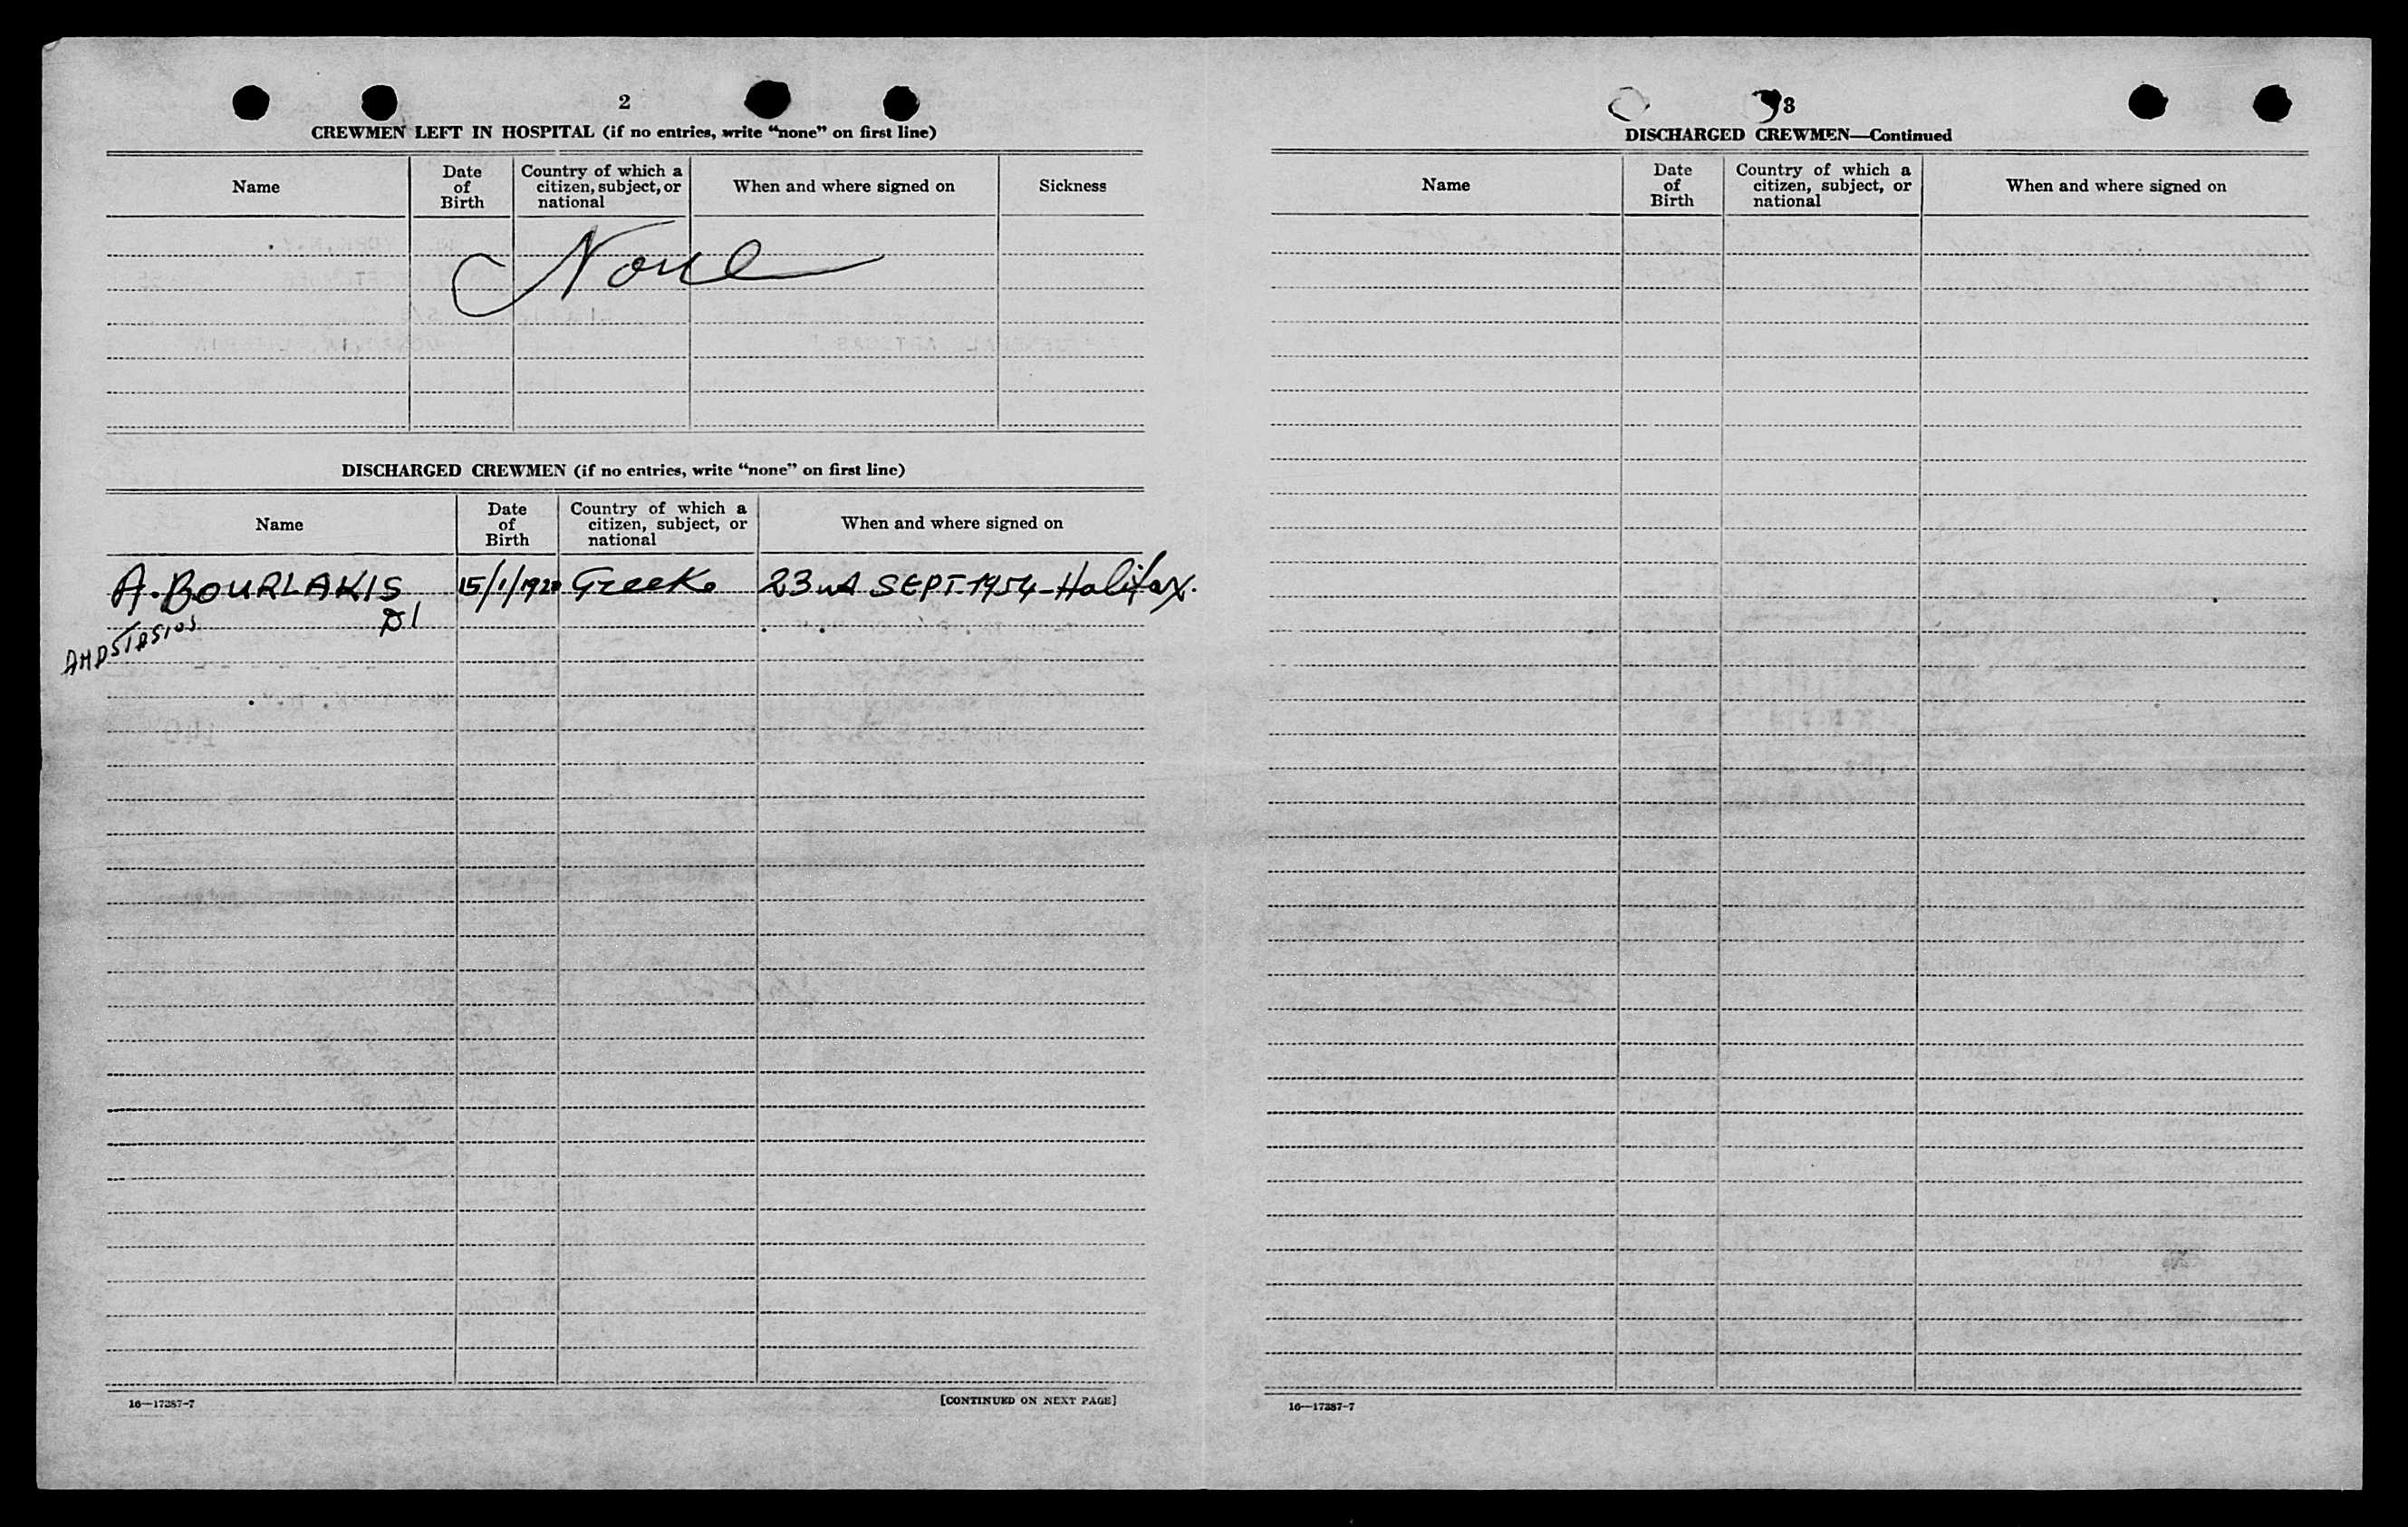 2
CREWMEN LEFT IN HOSPITAL (if no entries, write "none" on first line)
Name
Date of Birth
Country of which a citizen, subject, or national
When and where signed on
Sickness
None
DISCHARGED CREWMEN (if no entries, write "none" on first line)
Name
Date of Birth
Country of which a citizen, subject, or national
When and where signed on
A. BOURLAKIS 15/1/1920 Greek. 23rd SEPT. 1954 - Halifax.
D1
16—17387-7
[CONTINUED ON NEXT PAGE]
3
DISCHARGED CREWMEN—Continued
Name
Date of Birth
Country of which a citizen, subject, or national
When and where signed on
16—17387-7